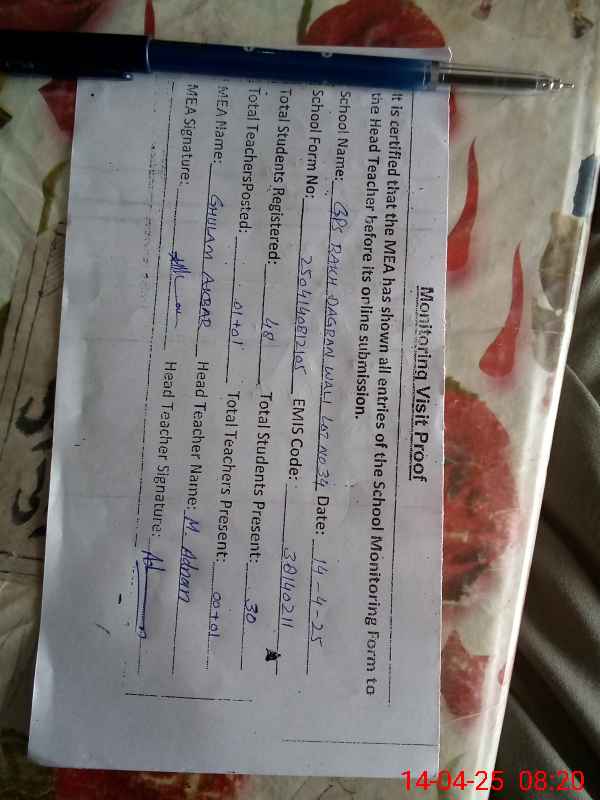 Monitoring Visit Proof
It is certified that the MEA has shown all entries of the School Monitoring Form to
the Head Teacher before its online submission.
School Name: GPS RAKH DAGRAN WALI LOT NO 34 Date: 14-4-25
School Form No: 2504140812105 EMIS Code: 38140211
Total Students Registered: 48 Total Students Present: 30
Total TeachersPosted: 01+01 Total Teachers Present: 00+01
MEA Name: GHULAM AKBAR Head Teacher Name: M. Adnan
MEA Signature: Head Teacher Signature:
14-04-25 08:20